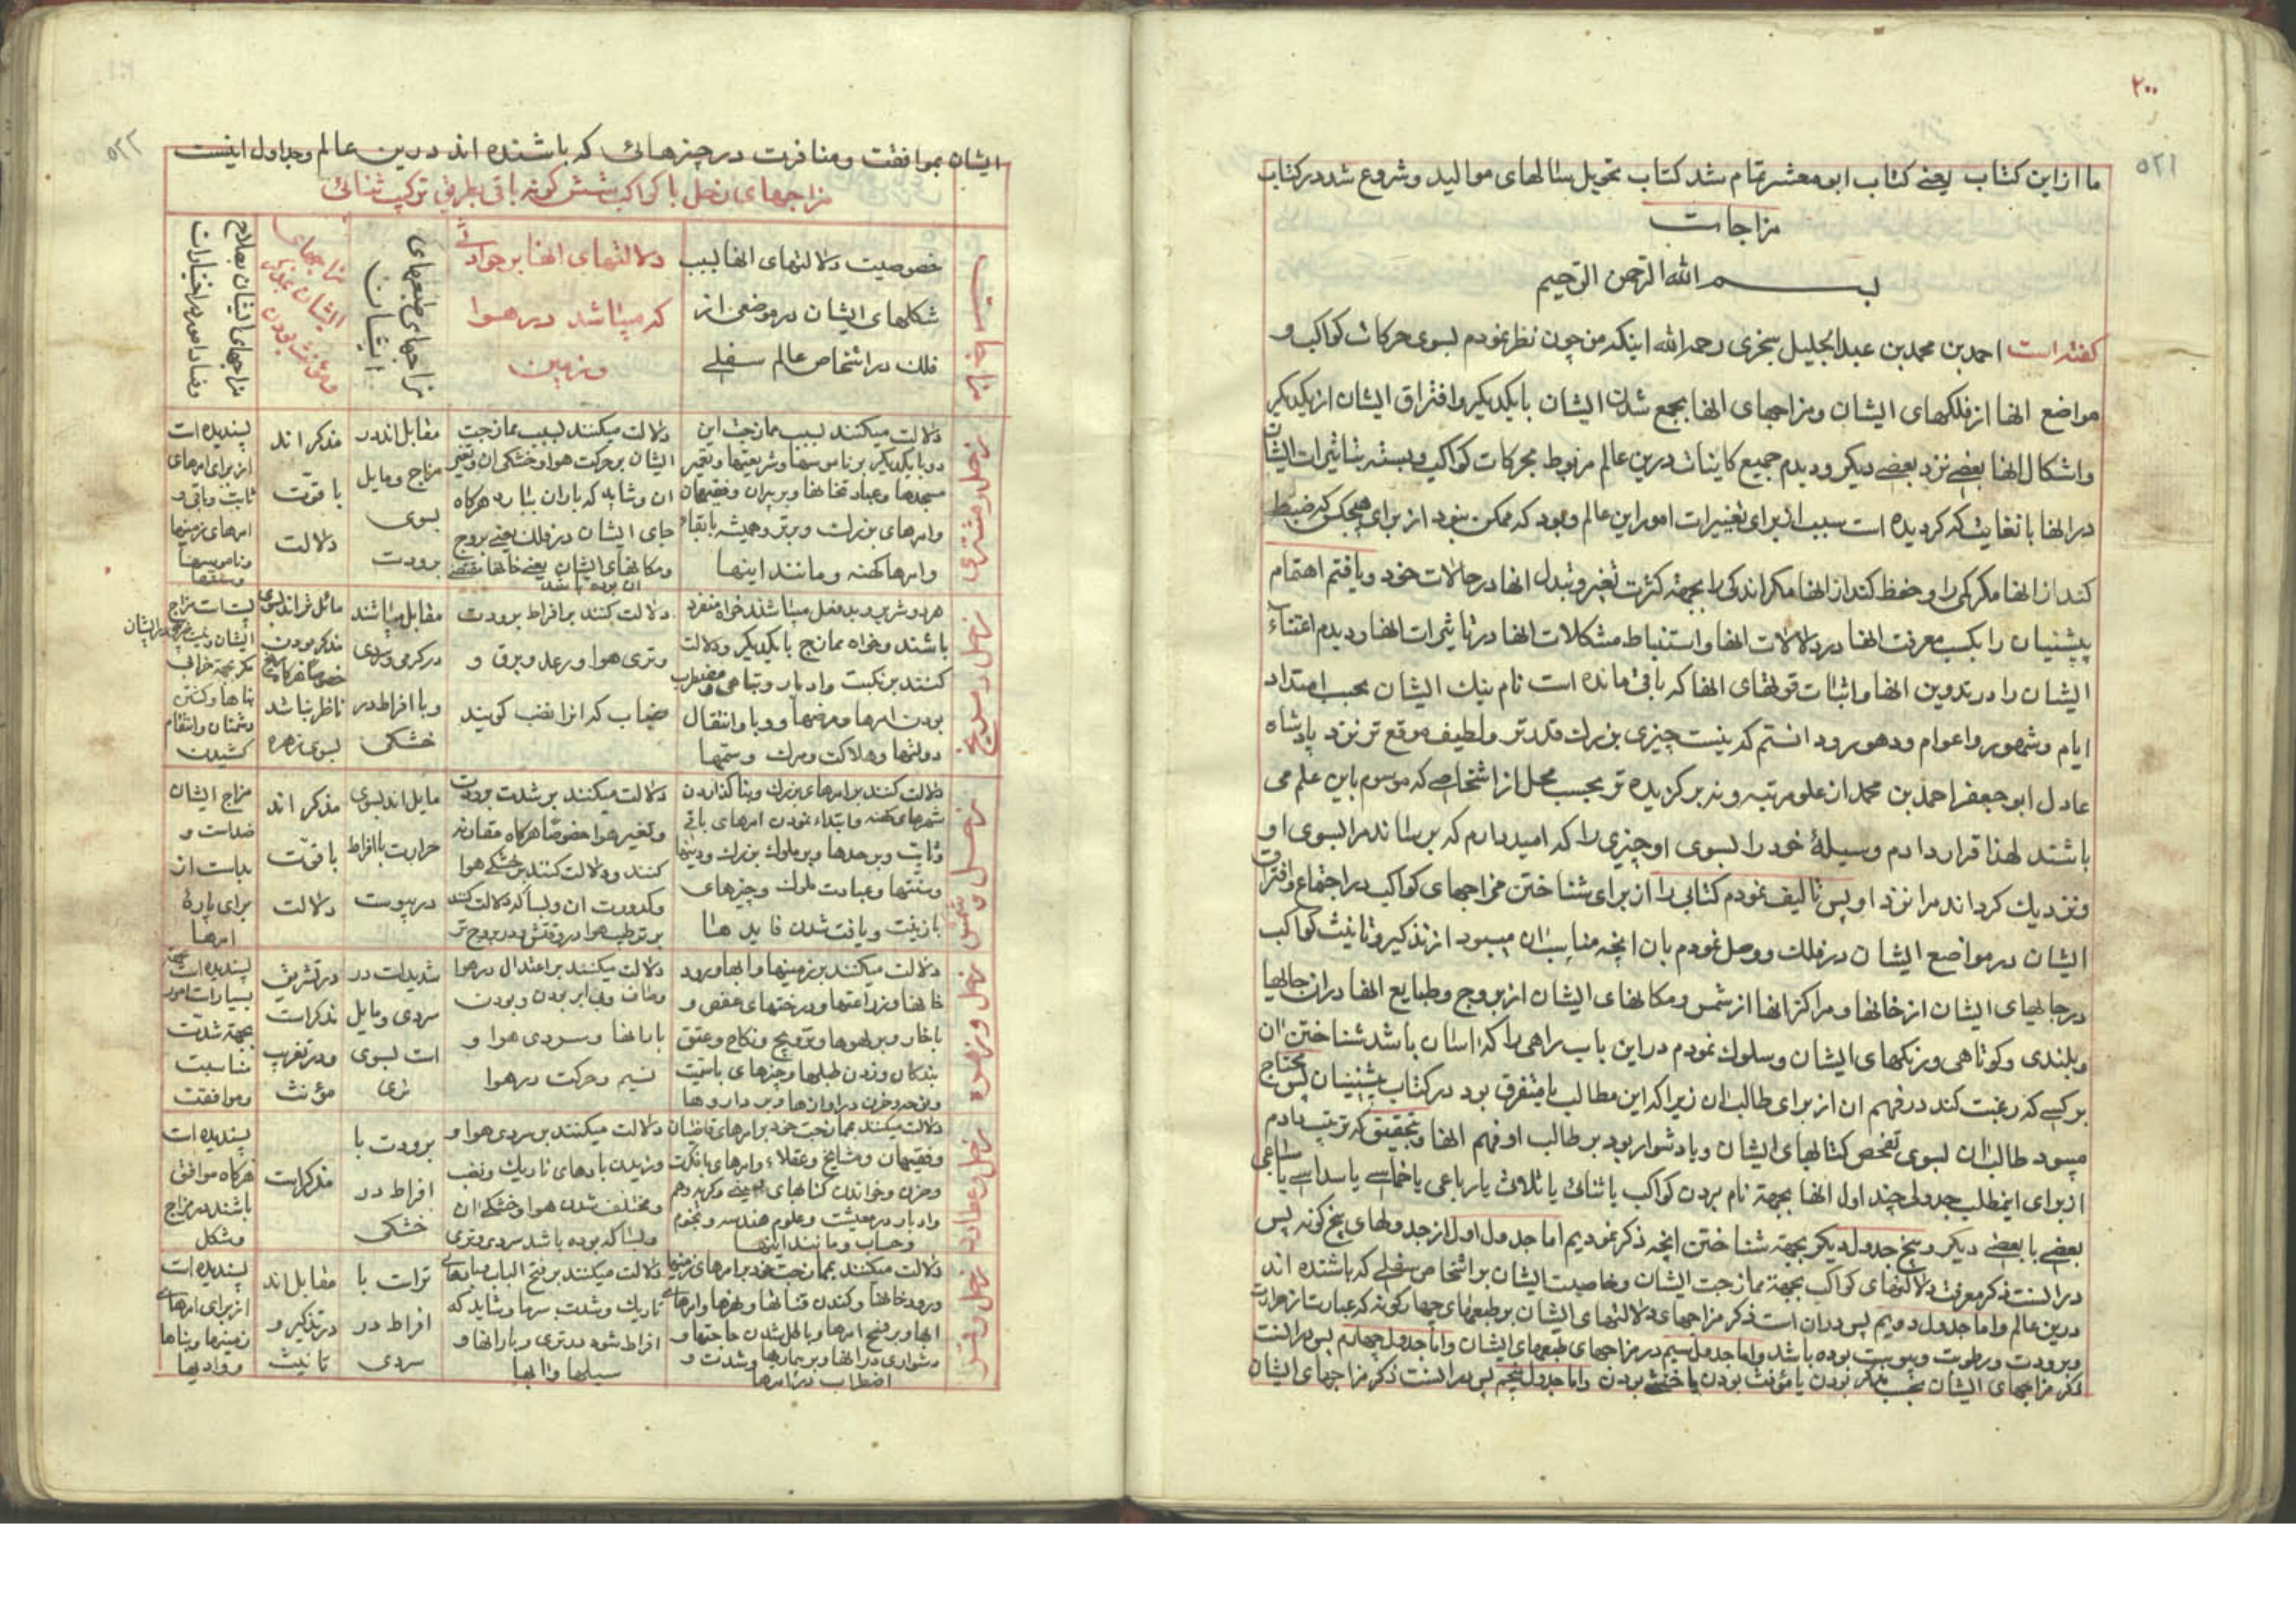 ۲۰۰
۵۲۱
ما از این کتاب یعنی کتاب ابو معشر تمام شد کتاب تحویل سالهای موالید و شروع شد در کتاب
مزاجات
بسم الله الرحمن الرحیم
گفته است احمد بن محمد بن عبد الجلیل سجزی رحمه الله اینکه من چون نظر نمودم بسوی حرکات کواکب و
مواضع انها از فلکهای ایشان و مزاجهای انها بجمع شدن ایشان با یکدیگر و افتراق ایشان از یکدیگر
و اشکال انها بعضی نزد بعضی دیگر و دیدم جمیع کاینات درین عالم مربوط بحرکات کواکب و بسته بتاثیرات ایشان
در انها بانغایت که کردیده است سبب از برای تغییرات امور این عالم و بود که ممکن نبود از برای هیچکس که ضبط
کند از انها مکر کمی را و حفظ کند از انها مکر اندکی را بجهته کثرت تغیر و تبدل انها در حالات خود و یافتم اهتمام
پیشنیان را بکسب معرفت انها در دلالات انها و استنباط مشکلات انها در تاثیرات انها و دیدم اعتناء
ایشان را در تدوین انها و اثبات قولهای انها که باقی مانده است نام نیك ایشان بحسب امتداد
ایام و شهور و اعوام و دهور و دانستم که نیست چیزی بزرك قدرتر و لطیف موقع تر نزد پادشاه
عادل ابو جعفر احمد بن محمد از علو مرتبه و نه برکزیده تر بحسب محل از اشخاصی که موسوم باین علم می
باشند لهذا قرار دادم وسیلهٔ خود را بسوی او چیزی را که امید دارم که برساند مرا بسوی او
و نزدیك کرداند مرا نزد او پس تالیف نمودم کتابی را از برای شناختن مزاجهای کواکب در اجتماع و افتراق
ایشان در مواضع ایشان در فلك و وصل نمودم بان انچه مناسب ان میبود از تذکیر و تانیث کواکب
در جایهای ایشان از خانها و مراکز انها از شمس و مکانهای ایشان از بروج و طبایع انها در ان جایها
و بلندی و کوتاهی و رنکهای ایشان و سلوك نمودم در این باب راهی را که اسان باشد شناختن ان
بر کسی که رغبت کند در فهم ان از برای طالب ان زیرا که این مطالب یا متفرق بود در کتاب پیشنیان پس محتاج
میبود طالب ان بسوی تفحص کتابهای ایشان و یا دشوار بود بر طالب او فهم انها و تحقیق که ترتیب دادم
از برای اینمطلب جدولی چند اول انها بجهته نام بردن کواکب یا ثنائی یا ثلاثی یا رباعی یا خماسی یا سداسی یا سباعی
بعضی با بعضی دیکر و پنج جدول دیکر بجهته شناختن انچه ذکر نمودیم اما جدول اول از جدولهای پنج کونه پس
در انست ذکر معرفت دلالتهای کواکب بجهته ممازجت ایشان و خاصیت ایشان بر اشخاص سفلی که باشنده اند
درین عالم و اما جدول دویم پس در ان است ذکر مزاجهای دلالتهای ایشان بر طبعهای چهارکونه که عبارتست از حرارت
و برودت و رطوبت و یبوست بوده باشد و اما جدول سیم در مزاجهای طبعهای ایشان و اما جدول چهارم پس در انست
ذکر مزاجهای ایشان بحسب مذکر بودن یا مؤنث بودن یا خنثی بودن و اما جدول پنجم پس در انست ذکر مزاجهای ایشان
۵۲۲
ایشان بموافقت و منافرت در چیزهائی که باشنده اند درین عالم و جداول اینست
مزاجهای زحل با کواکب شش کونه باقی بطریق ترکیب ثنائی
خصوصیت دلالتهای انها بسبب
شکلهای ایشان در موضعی از
فلك در اشخاص عالم سفلی
دلالتهای انها بر حوادثی
که میباشد در هوا
و زمین
مزاجهای طبعهای
ایشان
مزاجهای
ایشان بمذکر
و مؤنث بودن
مزاجهای ایشان بصلاح
و فساد امور در اختیارات
زحل و مشتری
دلالت میکنند بسبب ممازجت این
دو با یکدیکر بر ناموسها و شریعتها و تعمیر
مسجدها و عبادتخانها و بر پیران و فقیهان
و امرهای بزرك و برتر و همیشه بابقاء
و امرها کهنه و مانند اینها
دلالت میکنند بسبب ممازجت
ایشان بر حرکت هوا و خشکی ان و تغییر
ان و شاید که باران ببارد هرکاه
جای ایشان در فلك یعنی بروج
و مکانهای ایشان یعنی خانها مقتضی
ان بوده باشد
مقابل اند در
مزاج و مایل
بسوی
برودت
مذکر اند
با قوت
دلالت
پسندیده است
از برای امرهای
ثابت و باقی و
امرهای زمینها
و ناموسها
و سقفها
زحل و مریخ
هر دو شریر و بدفعل میباشند خواه منفرد
باشند و خواه ممازج با یکدیکر و دلالت
کنند بر نکبت و ادبار و تباهی و مضطرب
بودن امرها و مرضها و وبا و انتقال
دولتها و هلاکت و مرك و ستمها
دلالت کنند بر افراط برودت
و تری هوا و رعد و برق و
ضباب که انرا نغب کویند
مقابل میباشند
در کرمی و سردی
و با افراط در
خشکی
مائل تر اند بسوی
مذکر بودن
خصوصا هرکاه مریخ
ناظر نباشد
بسوی زهره
مکر بجهته خرابی
بناها و کشتن
دشمنان و انتقام
کشیدن
زحل و شمس
دلالت کنند بر امرهای بزرك و بنا کذاردن
شهرهای کهنه و ابتداء نمودن امرهای باقی
و ثابت و بر جدها و بر ملوك بزرك و دینها
و سنتها و عبادت ملوك و چیزهای
بازینت و یافت شدن فایدها
دلالت میکنند بر شدت برودت
و تغییر هوا خصوصا هرکاه مقارنه
کنند و دلالت کنند بر خشکی هوا
و کدورت ان و بسا که دلالت کنند
بر ترطیب هوا در وقتش و در بروج تر
مایل اند بسوی
حرارت با افراط
در یبوست
مذکر اند
با قوت
دلالت
مزاج ایشان
ضد است و
بد است از
برای پارهٔ
امرها
زحل و زهره
دلالت میکنند بر زمینها و ابها و رود
خانها و زراعتها و درختهای عفص و
باخار و بر لهوها و تزویج و نکاح و عتق
بندکان و زدن طبلها و چیزهای باستیت
و بر حدوث حزن در اوازها و بر داروها
دلالت میکنند بر اعتدال در هوا
وصاف و بی ابر بودن و بودن
بارانها و سردی هوا و
نسیم و حرکت در هوا
شدید است در
سردی و مایل
است بسوی
تری
در تشریق
مذکر است
و در تغریب
مؤنث
پسندیده است بجهته
بسیار است امور
بجهته شدت
مناسبت
و موافقت
زحل و عطارد
دلالت میکنند بممازجت خود بر امرهای قاضیان
و فقیهان و مشایخ و عقلاء و امرهای بانکبت
و حزن و خواندن کتابهای
و ادبار در معیشت و علوم هندسه و نجوم
و حساب و مانند اینها
دلالت میکنند بر سردی هوا و
وزیدن بادهای تاریك و نغب
و مختلف شدن هوا و خشکی ان
و بسا که بوده باشد سردی و تری
برودت با
افراط در
خشکی
مذکر است
پسندیده است
هرکاه موافق
باشند در مزاج
و شکل
زحل و قمر
دلالت میکنند بممازجت خود بر امرهای زمینها
و رودخانها و کندن قناتها و نهرها و امرهای
ابها و بر فتح امرها و باطل شدن حاجتها و
دشواری در انها و بر بیماریها و شدت و
اضطراب در امرها
دلالت میکنند بر فتح الباب میاههای
تاریك و شدت سرما و شاید که
افراط شود در تری و بارانها و
سیلها و ابها
تر است با
افراط در
سردی
مقابل اند
در تذکیر و
تانیث
پسندیده است
از برای امرهای
زمینها و بناها
و وادیها